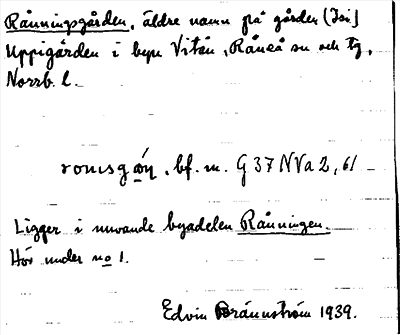 Råningsgården, äldre namn på gården (Isi)
Uppigården i byn Vitån, Råneå sn och tg,
Norrb. l.
bf. m. G 37 NVa 2, 61
Ligger i nuvande byadelen Råningen.
Hör under no 1.
Edvin Brännström 1939.